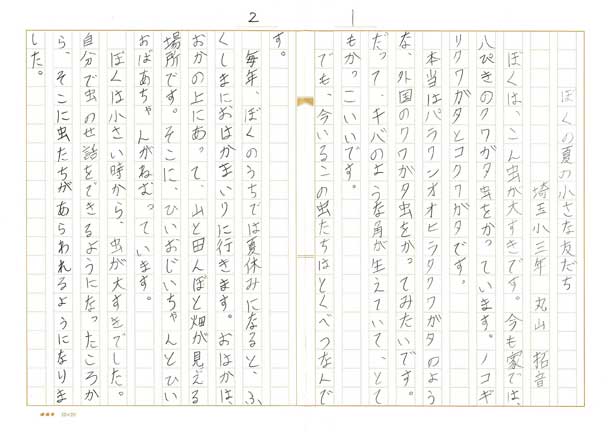 1
ぼくの夏の小さな友だち
埼玉小三年　丸山　拓音
ぼくは、こん虫が大すきです。今も家では、
八ぴきのクワガタ虫をかっています。ノコギ
リクワガタとコクワガタです。
本当はパラワンオオヒラタクワガタのよう
な、外国のクワガタ虫をかってみたいです。
だって、キバのような角が生えていて、とて
もかっこいいです。
でも、今いるこの虫たちはとくべつなんで
2
す。
毎年、ぼくのうちでは夏休みになると、ふ
くしまにおはかまいりに行きます。おはかは、
おかの上にあって、山と田んぼと畑が見える
場所です。そこに、ひいおじいちゃんとひい
おばあちゃんがねむっています。
ぼくは小さい時から、虫が大すきでした。
自分で虫のせ話をできるようになったころか
ら、そこに虫たちがあらわれるようになりま
した。
20×20